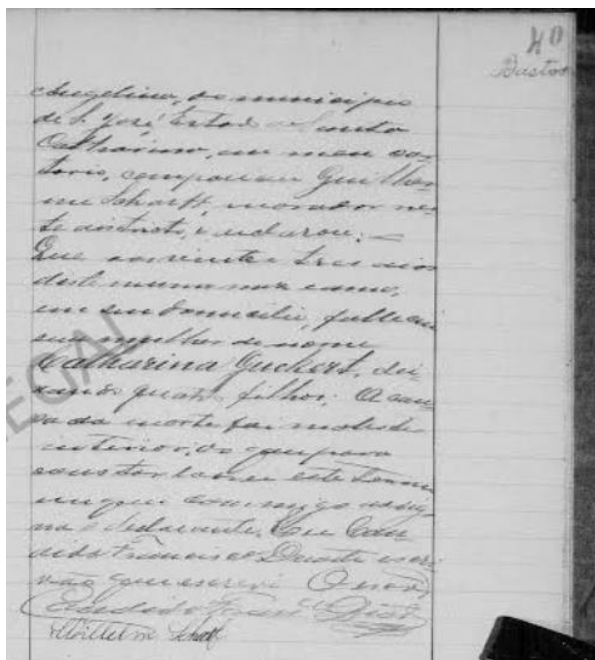 40
Bastos
Angelina, do municipio
de S. José Estado de Santa
Catharina, em meu car-
torio, compareceu Guilher
me Scharff, morador nes
te districto, e declarou: —
Que aos vinte e tres dias
deste mesmo mez e anno,
em seu domicilio, falleceu
sua mulher de nome
Catharina Guckert, dei-
xando quatro filhos. A cau-
sa da morte foi molestia
interior, do que para
constar lavrei este termo
em que commigo assig-
na o declarante. Eu Can-
dido Francisco Duarte escri
vão que escrevi. O escrivão
Candido Franco Duarte
Wilhelm Scharf
EGAL